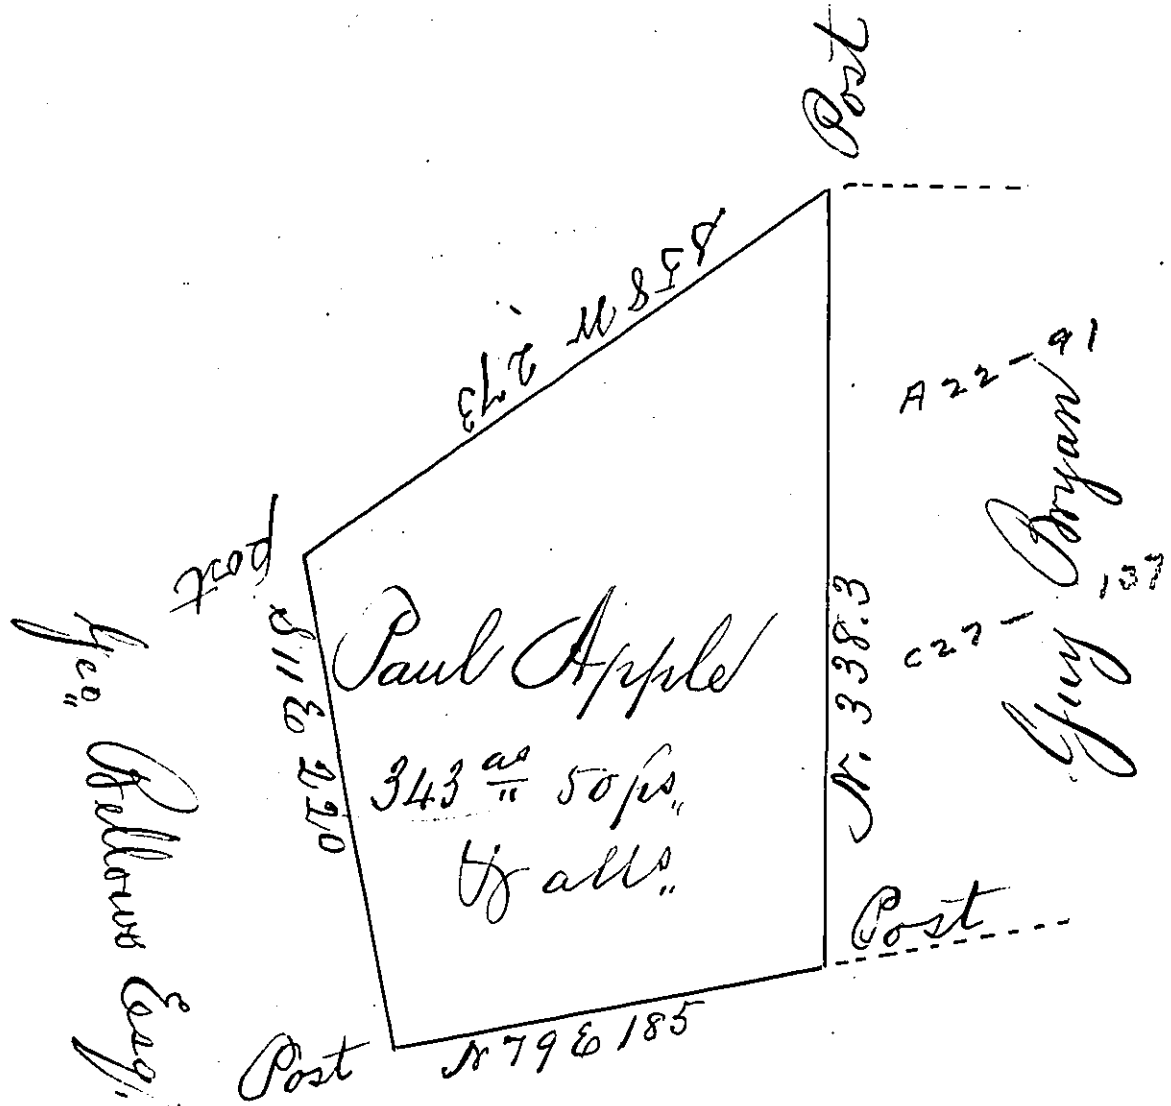 Post
S 58 W 273
A 22 - 91
Guy Bryan
C 27 - 137
post
S 11 E 220
Paul Apple
343 as 50 ps„
& alls„
N. 338.3
Geo„ Bellows Esq„
Post
N 79 E 185
Post